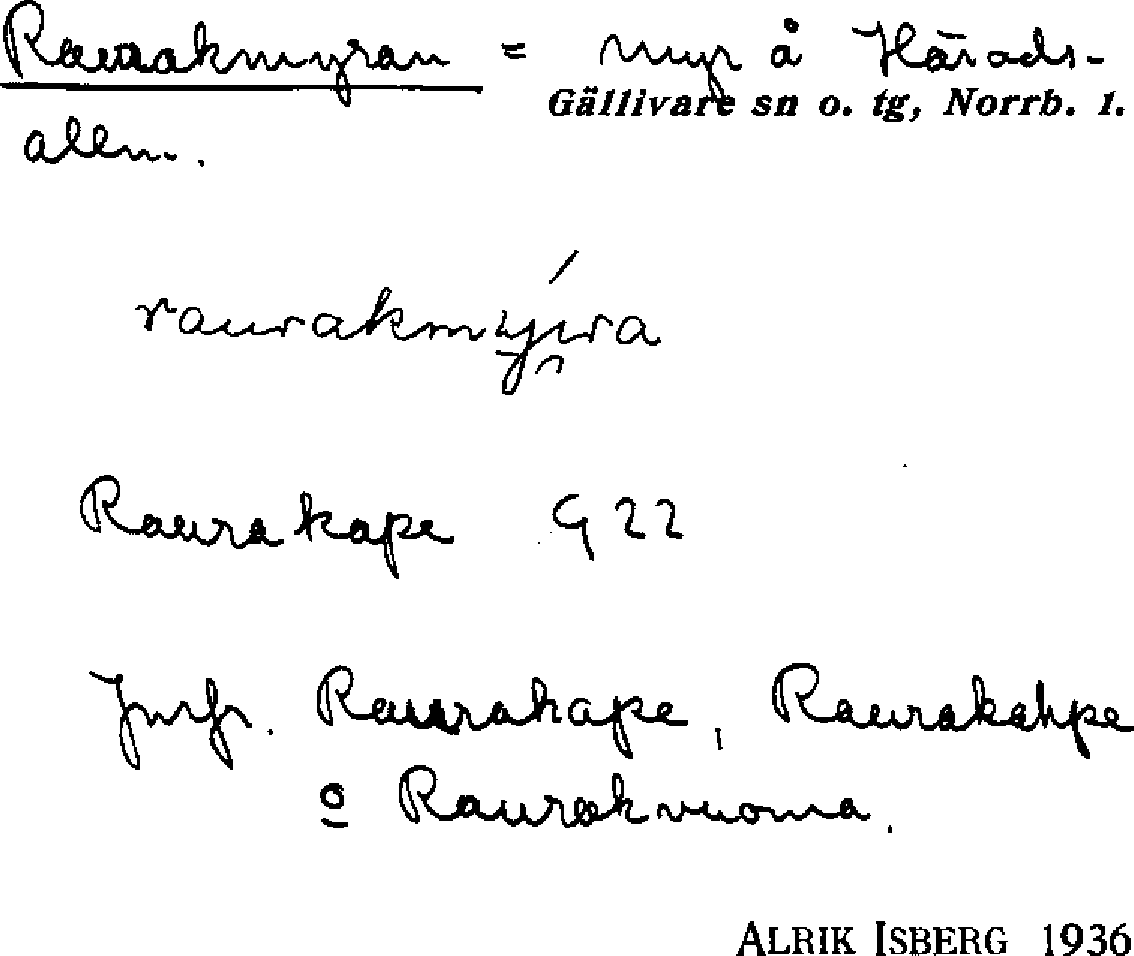 Raurakmyran = myr å Härads-
Gällivare sn o. tg, Norrb. l.
allm.
raurakmyra
Raurakape G 22
Jmfr. Raurakape, Raurakahpe
o Raurakvuoma.
ALRIK ISBERG 1936